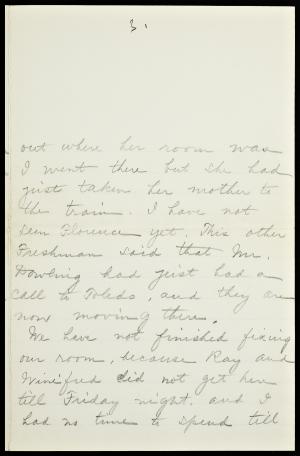 3.
out where her room was
I went there but she had
just taken her mother to
the train. I have not
seen Florence yet. This other
Freshman said that Mr.
Dowling had just had a
call to Toledo, and they are
now moving there.
We have not finished fixing
our room, because Ray and
Winifred did not get here
till Friday night. and I
had no time to spend till